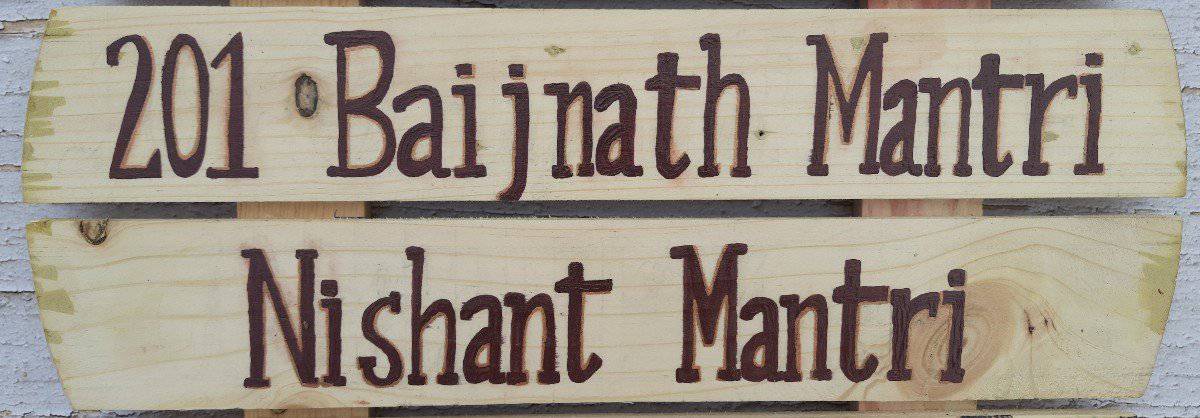 201 Baijnath Mantri
Nishant Mantri